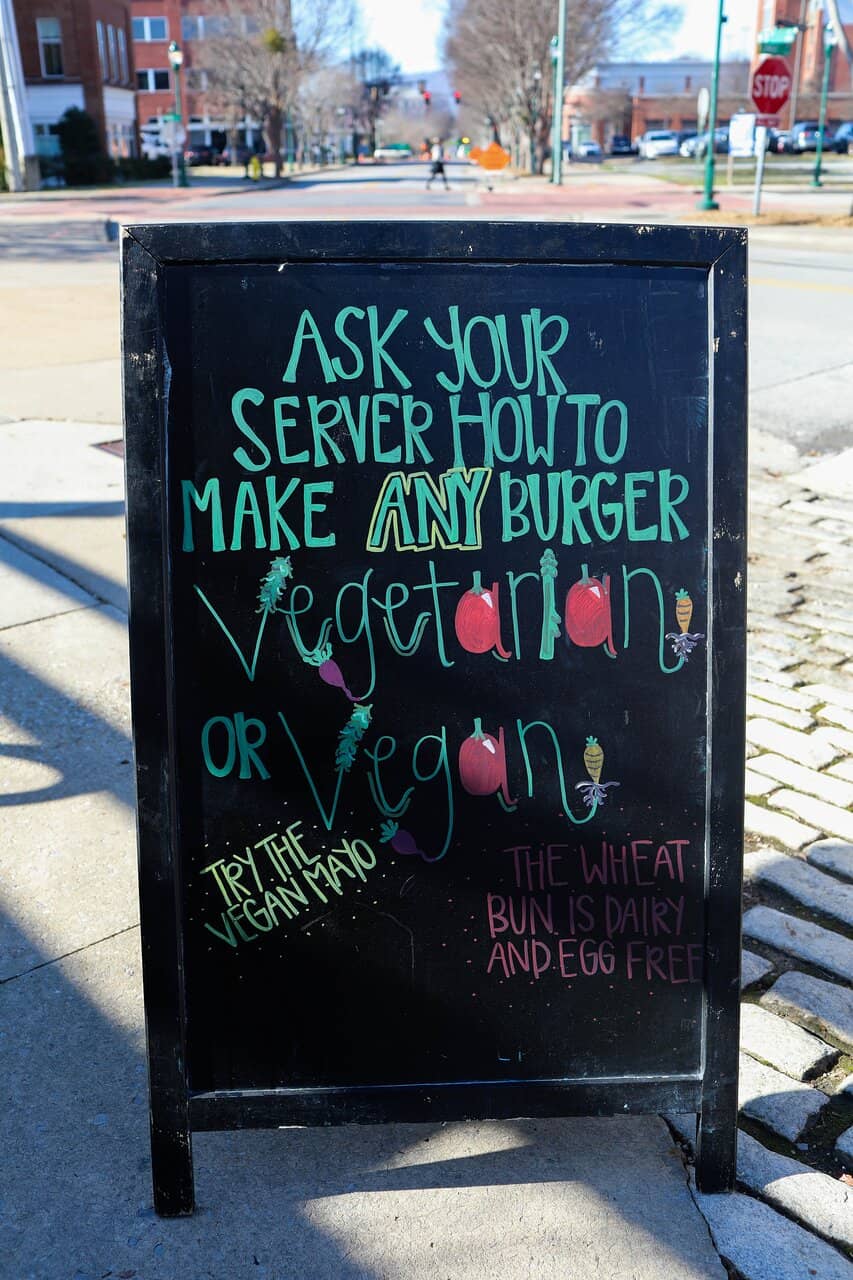 STOP
ASK YOUR
SERVER HOW TO
MAKE ANY BURGER
Vegetarian
OR Vegan
TRY THE
VEGAN MAYO
THE WHEAT
BUN IS DAIRY
AND EGG FREE